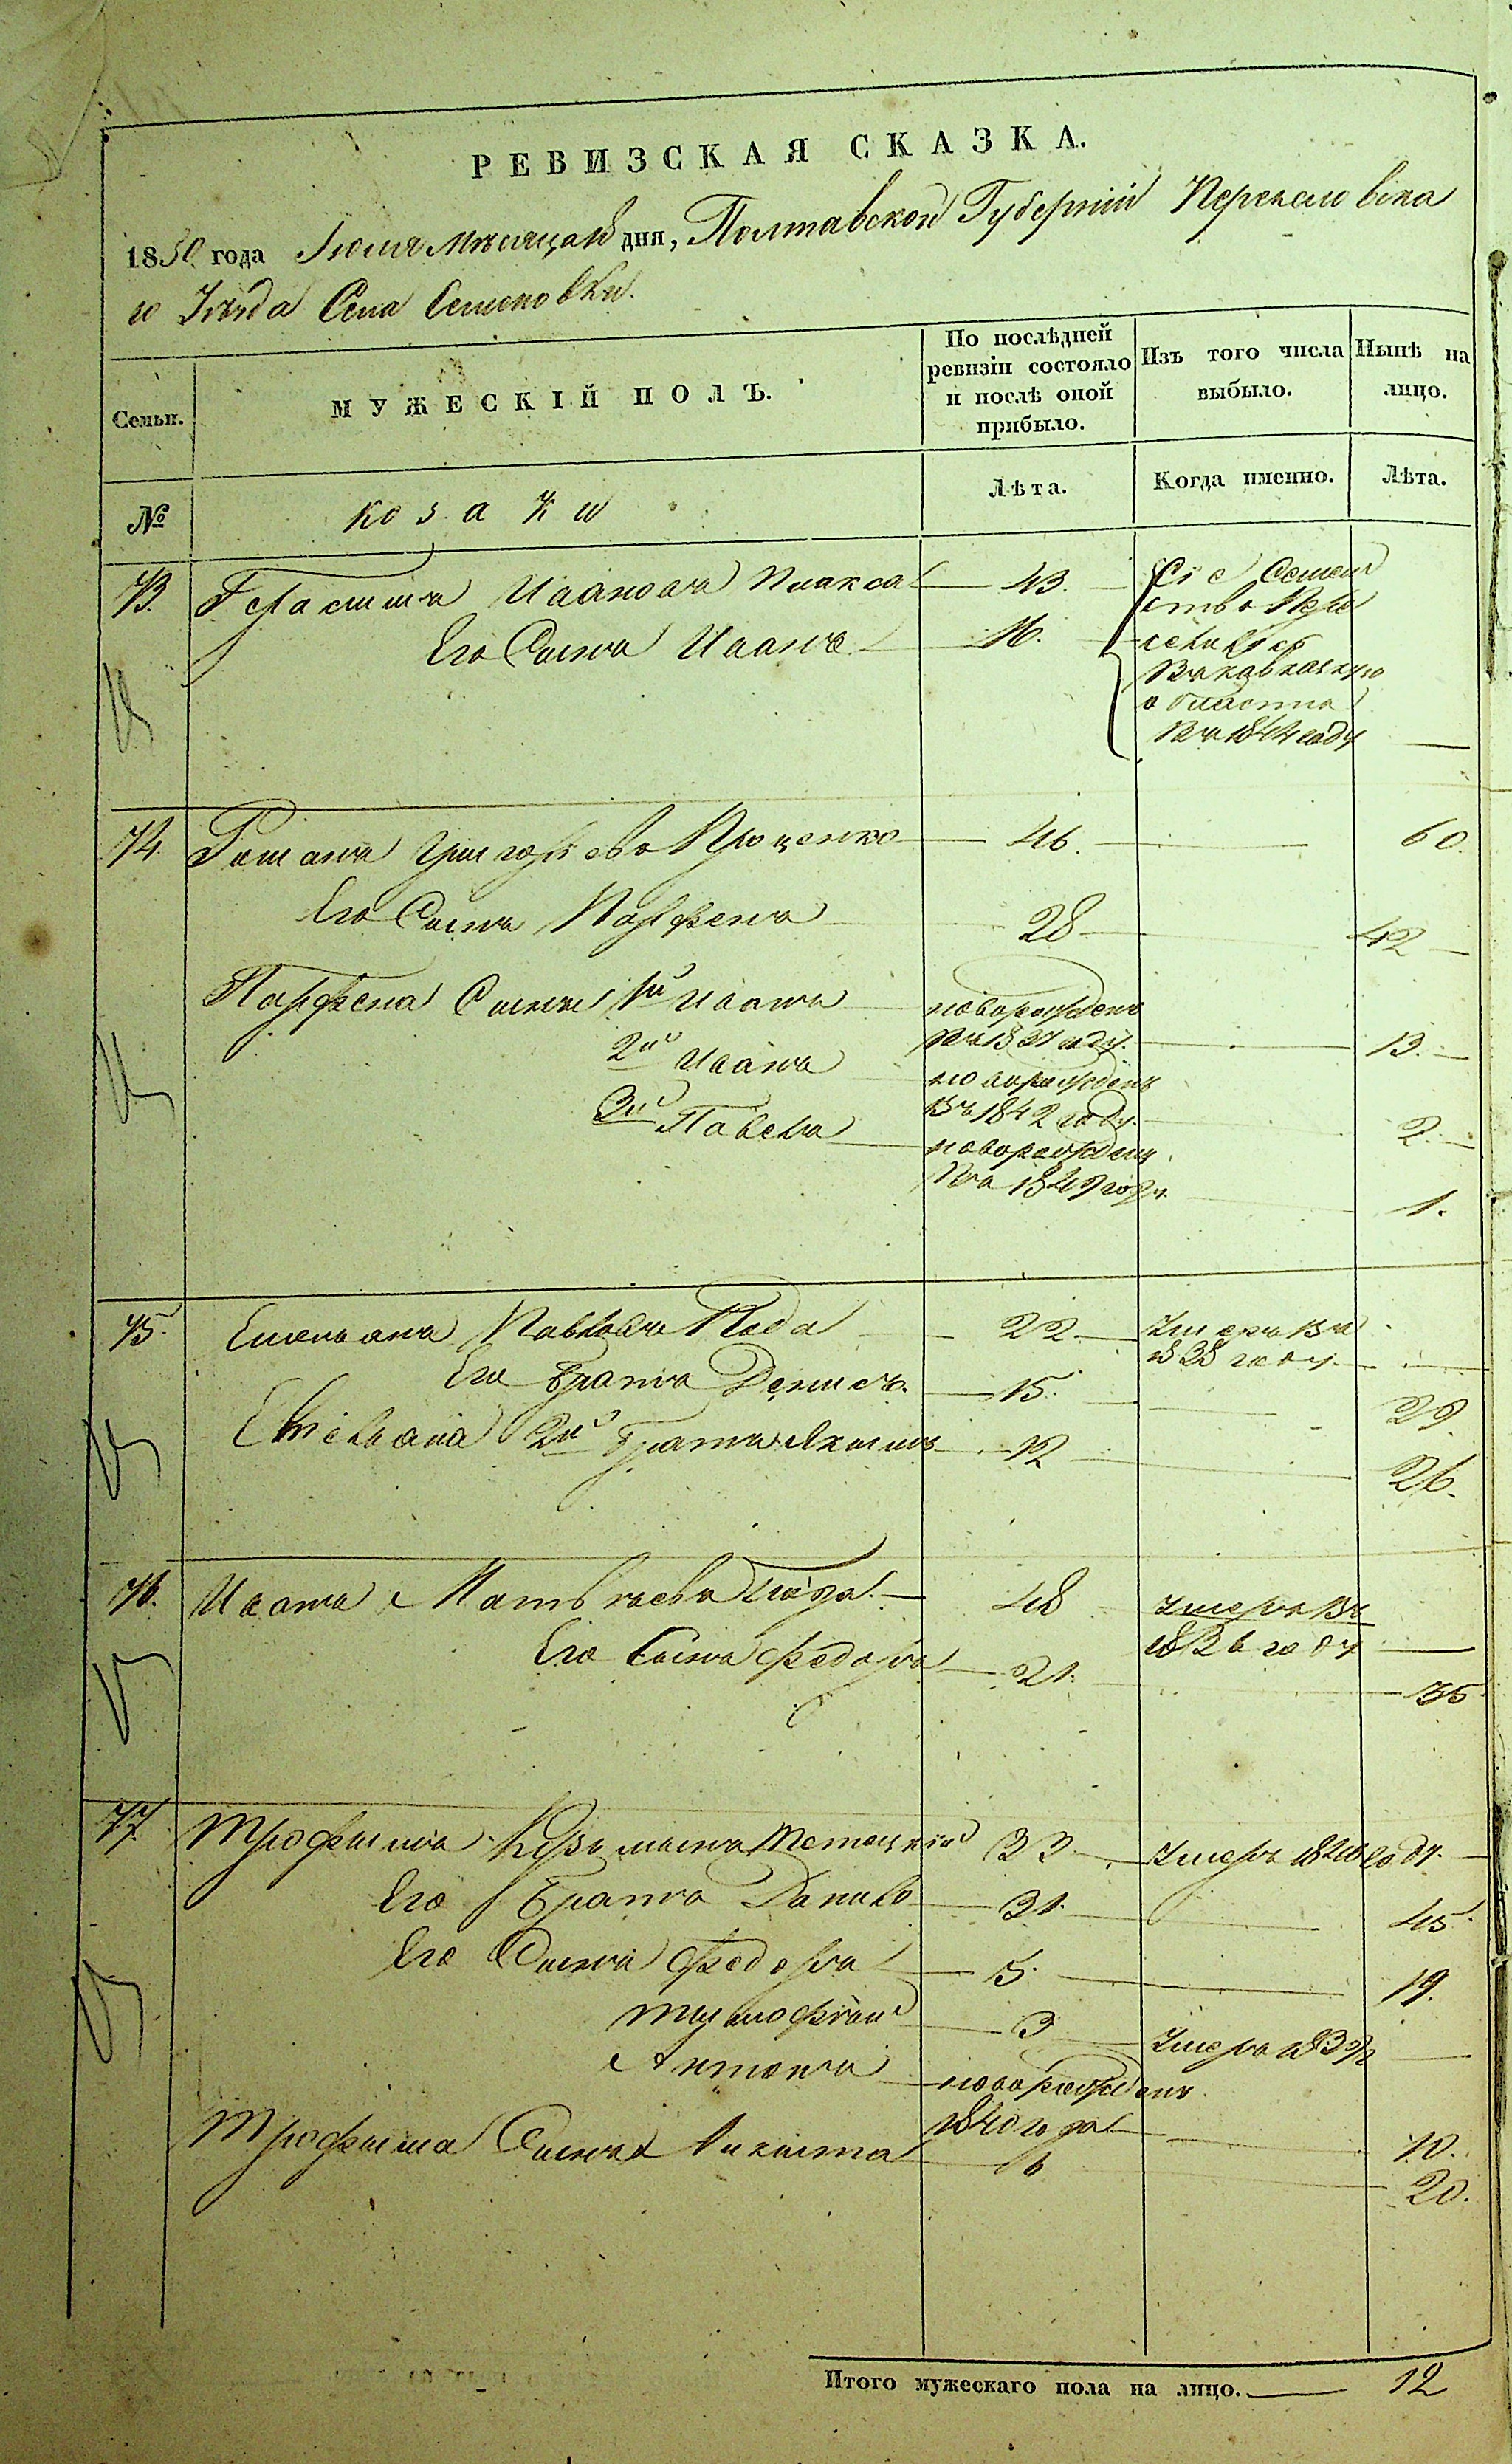 РЕВИЗСКАЯ СКАЗКА.
1850 года Іюля мѣсяца дня, Полтавской Губерніи Переяславска
го Уѣзда Села Семеновки.
Семьи. МУЖЕСКІЙ ПОЛЪ. По послѣдней ревизіи состояло и послѣ оной прибыло. Изъ того числа выбыло. Нынѣ на лицо.
№ козаки Лѣта. Когда именно. Лѣта.
73. Герасимъ Ивановъ Плакса 43. Сіе Семей
Его Сынъ Иванъ 16. ство Пере
селилось
Въ кавказкую
область
Въ 1844 году
74. Романъ Григорьевъ Проценко 46. 60.
Его Сынъ Парфенъ 28 42
Парфена Сыны 1й Иванъ новорожденъ
Въ 1837 году. 13.
2й Иванъ новорожденъ
Въ 1842 году. 2.
3й Павелъ новорожденъ
Въ 1849 году. 1.
75. Емельянъ Павловъ 22. Умеръ Въ
1838 году
Его Братъ Денисъ. 15. 29
Емельяна 2й Братъ Якимъ 12 26.
76. Иванъ Матвѣевъ 48 Умеръ Въ
1836 году
Его Сынъ Федоръ 21. 35
77. Трофимъ Кузьминъ 33 Умеръ году.
Его Братъ Данило 31. 45
Его Сынъ Федоръ 5. 19.
Тимофѣй 3 Умеръ
Антонъ новорожденъ
1840 года 10.
Трофима Сынъ Никита 6 20.
Итого мужескаго пола на лицо. 12